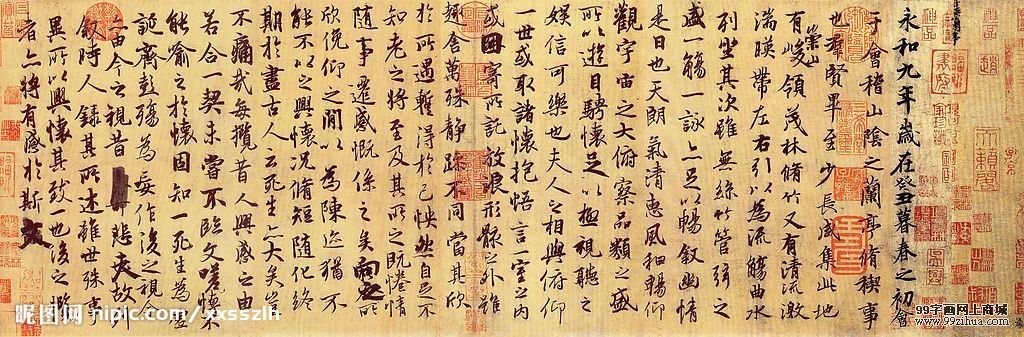 永和九年歲在癸丑暮春之初會
于會稽山陰之蘭亭脩禊事
也羣賢畢至少長咸集此地
有崇山峻領茂林脩竹又有清流激
湍暎帶左右引以為流觴曲水
列坐其次雖無絲竹管弦之
盛一觴一詠亦足以暢敘幽情
是日也天朗氣清惠風和暢仰
觀宇宙之大俯察品類之盛
所以遊目騁懷足以極視聽之
娛信可樂也夫人之相與俯仰
一世或取諸懷抱悟言一室之內
或因寄所託放浪形骸之外雖
趣舍萬殊靜躁不同當其欣
於所遇暫得於己怏然自足不
知老之將至及其所之既惓情
隨事遷感慨係之矣向之所
欣俛仰之閒以為陳迹猶不
能不以之興懷況脩短隨化終
期於盡古人云死生亦大矣豈
不痛哉每攬昔人興感之由
若合一契未嘗不臨文嗟悼不
能喻之於懷固知一死生為虛
誕齊彭殤為妄作後之視今
亦由今之視昔悲夫故列
敘時人錄其所述雖世殊事
異所以興懷其致一也後之攬
者亦將有感於斯文
昵图网 nipic.com/xxsszlh
99字画网上商城
www.99zihua.com